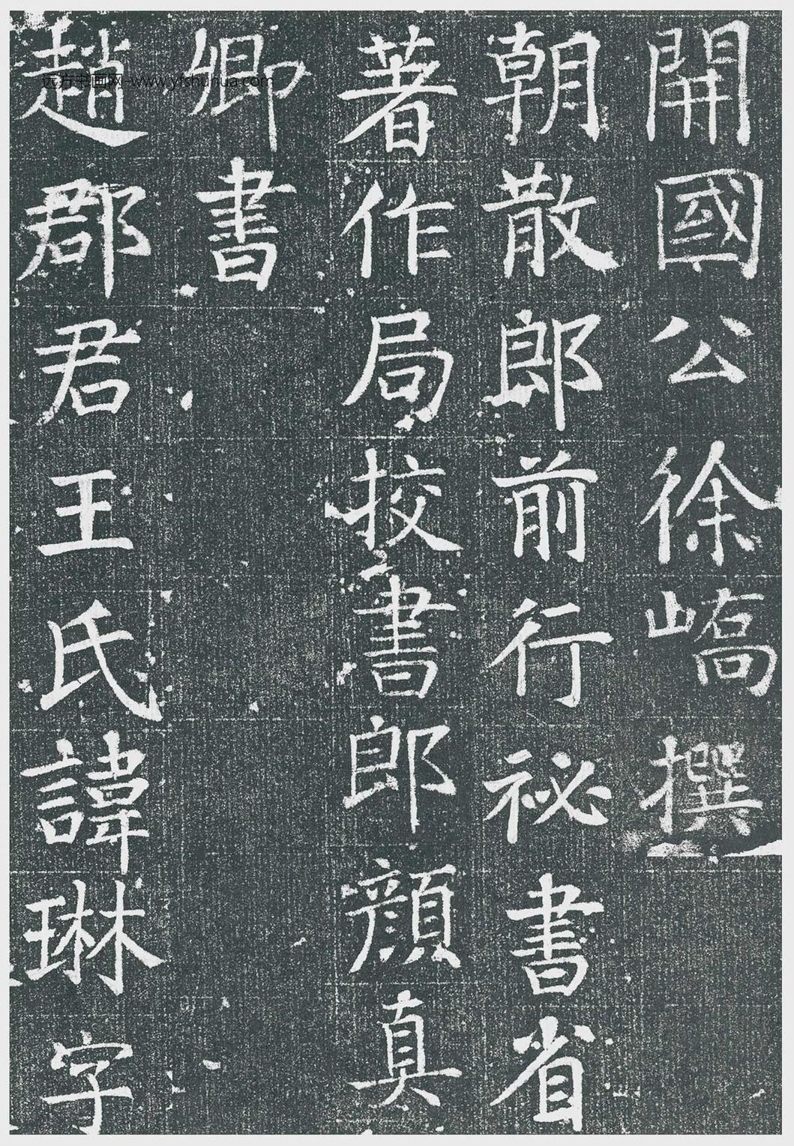 開國公徐嶠撰
朝散郎前行祕書省
著作局挍書郎顏真
卿書
趙郡君王氏諱琳字
远方书画网-www.yfshuhua.com